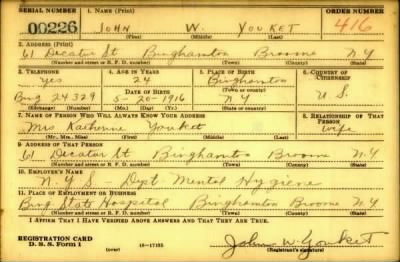 SERIAL NUMBER 1. NAME (Print) ORDER NUMBER
00226 JOHN W. YOUKET 416
(First) (Middle) (Last)
2. ADDRESS (Print)
61 Decatur St Binghamton Broome N.Y
(Number and street or R. F. D. number) (Town) (County) (State)
3. TELEPHONE 4. AGE IN YEARS 5. PLACE OF BIRTH 6. COUNTRY OF CITIZENSHIP
yes 24 Binghamton
DATE OF BIRTH (Town or county)
Bing 24329 5-20-1916 N Y U.S.
(Exchange) (Number) (Mo.) (Day) (Yr.) (State or country)
7. NAME OF PERSON WHO WILL ALWAYS KNOW YOUR ADDRESS 8. RELATIONSHIP OF THAT PERSON
Mrs Katherine Youket wife
(Mr., Mrs., Miss) (First) (Middle) (Last)
9. ADDRESS OF THAT PERSON
61 Decatur St Binghamton Broome N.Y
(Number and street or R. F. D. number) (Town) (County) (State)
10. EMPLOYER'S NAME
N.Y.S. Dept Mental Hygiene
11. PLACE OF EMPLOYMENT OR BUSINESS
Bing State Hospital Binghamton Broome N.Y
(Number and street or R. F. D. number) (Town) (County) (State)
I AFFIRM THAT I HAVE VERIFIED ABOVE ANSWERS AND THAT THEY ARE TRUE.
REGISTRATION CARD
D. S. S. Form 1 (over) 16—17105 John W Youket
(Registrant's signature)